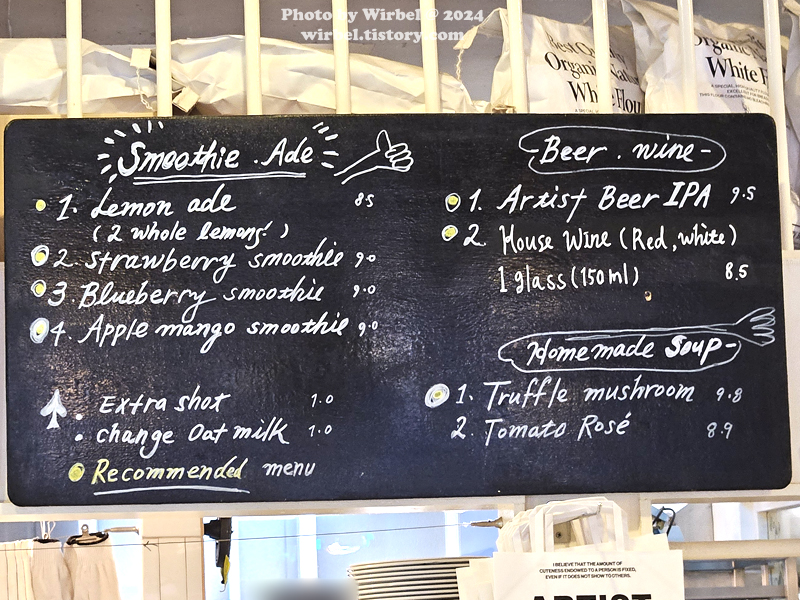 Photo by Wirbel © 2024
wirbel.tistory.com
Best Qua
Organic Natu
White Flour
Organic
White F
Smoothie . Ade
1. Lemon ade 8.5
(2 whole lemons!)
2. Strawberry smoothie 9.0
3 Blueberry smoothie 9.0
4. Apple mango smoothie 9.0
Extra shot 1.0
change Oat milk 1.0
Recommended menu
-Beer . wine-
1. Artist Beer IPA 9.5
2. House Wine (Red, white)
1 glass (150ml) 8.5
Homemade Soup-
1. Truffle mushroom 9.8
2. Tomato Rosé 8.9
I BELIEVE THAT THE AMOUNT OF
CUTENESS ENDOWED TO A PERSON IS FIXED,
EVEN IF IT DOES NOT SHOW TO OTHERS.
ARTIST